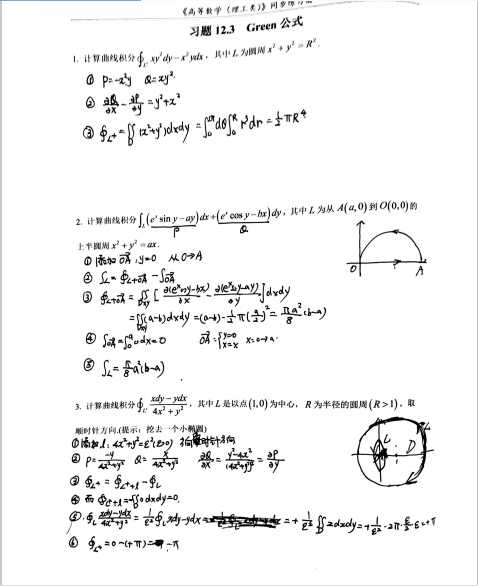 《高等数学（理工类）》同步练习
习题 12.3 Green 公式
1. 计算曲线积分 ∮_L xy²dy − x²ydx，其中 L 为圆周 x² + y² = R².
① P=-x²y Q=xy².
② ∂Q/∂X - ∂P/∂y = y²+x²
③ ∮_L+ = ∬_D (x²+y²)dxdy = ∫₀^2π dθ∫₀^R r³dr = 1/2 πR⁴
2. 计算曲线积分 ∫_L (eˣ sin y − ay)dx + (eˣ cos y − bx)dy，其中 L 为从 A(a,0) 到 O(0,0) 的
P Q
上半圆周 x² + y² = ax.
O A
① 添加 OA, y=0 从 O→A
② ∫_L = ∮_L+OA - ∫_OA
③ ∮_L+OA = ∬_Dxy [∂(eˣcosy-bx)/∂x - ∂(eˣsiny-ay)/∂y] dxdy
= ∬_Dxy (a-b)dxdy = (a-b)·1/2 π(a/2)² = πa²/8 (a-b)
④ ∫_OA = ∫₀^a 0dx = 0 OA = {y=0 x=x x: 0→a.
⑤ ∫_L = π/8 a²(a-b)
3. 计算曲线积分 ∮_L (xdy − ydx)/(4x² + y²)，其中 L 是以点 (1,0) 为中心，R 为半径的圆周 (R > 1)，取
顺时针方向.(提示：挖去一个小椭圆)
L D
① 添加 l: 4x²+y²=ε²(ε>0) 时针方向
② P= -y/(4x²+y²) Q= x/(4x²+y²) ∂Q/∂X = (y²-4x²)/(4x²+y²)² = ∂P/∂y
③ ∮_L+ = ∮_L+l - ∮_l
④ 而 ∮_L+l = -∬0dxdy=0.
⑤ ∮_l (xdy-ydx)/(4x²+y²) = 1/ε² ∮_l xdy-ydx = + 1/ε² ∬_D 2dxdy = + 1/ε² · 2π · ε/2 · ε = +π
⑥ ∮_L+ = 0-(+π) = -π